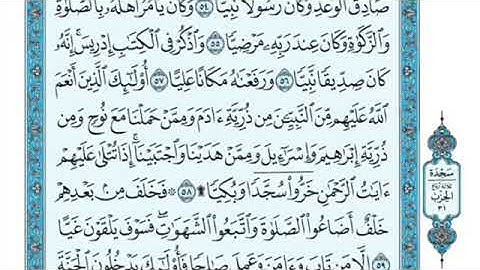 صَادِقَ ٱلْوَعْدِ وَكَانَ رَسُولًا نَّبِيًّا ٥٤ وَكَانَ يَأْمُرُ أَهْلَهُۥ بِٱلصَّلَوٰةِ
وَٱلزَّكَوٰةِ وَكَانَ عِندَ رَبِّهِۦ مَرْضِيًّا ٥٥ وَٱذْكُرْ فِى ٱلْكِتَٰبِ إِدْرِيسَ ۚ إِنَّهُۥ
كَانَ صِدِّيقًا نَّبِيًّا ٥٦ وَرَفَعْنَٰهُ مَكَانًا عَلِيًّا ٥٧ أُو۟لَٰٓئِكَ ٱلَّذِينَ أَنْعَمَ
ٱللَّهُ عَلَيْهِم مِّنَ ٱلنَّبِيِّـۧنَ مِن ذُرِّيَّةِ ءَادَمَ وَمِمَّنْ حَمَلْنَا مَعَ نُوحٍ وَمِن
ذُرِّيَّةِ إِبْرَٰهِيمَ وَإِسْرَٰٓءِيلَ وَمِمَّنْ هَدَيْنَا وَٱجْتَبَيْنَآ ۚ إِذَا تُتْلَىٰ عَلَيْهِمْ
ءَايَٰتُ ٱلرَّحْمَٰنِ خَرُّوا۟ سُجَّدًا وَبُكِيًّا ۩ ٥٨ ۞ فَخَلَفَ مِنۢ بَعْدِهِمْ
خَلْفٌ أَضَاعُوا۟ ٱلصَّلَوٰةَ وَٱتَّبَعُوا۟ ٱلشَّهَوَٰتِ ۖ فَسَوْفَ يَلْقَوْنَ غَيًّا
٥٩ إِلَّا مَن تَابَ وَءَامَنَ وَعَمِلَ صَٰلِحًا فَأُو۟لَٰٓئِكَ يَدْخُلُونَ ٱلْجَنَّةَ
سَجْدَة
الحِزْب
٣١